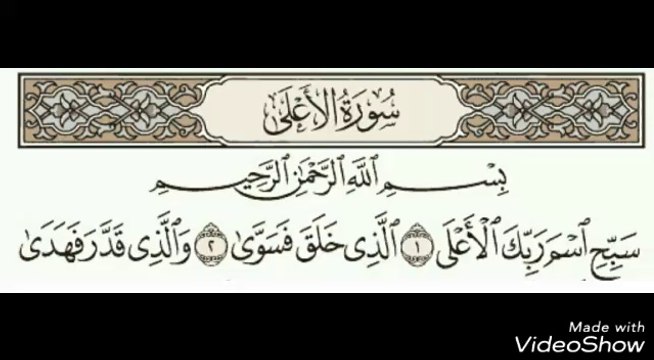 سُورَةُ الأَعْلَى
بِسْمِ ٱللَّهِ ٱلرَّحْمَٰنِ ٱلرَّحِيمِ
سَبِّحِ ٱسْمَ رَبِّكَ ٱلْأَعْلَى ١ ٱلَّذِي خَلَقَ فَسَوَّىٰ ٢ وَٱلَّذِي قَدَّرَ فَهَدَىٰ
Made with
VideoShow